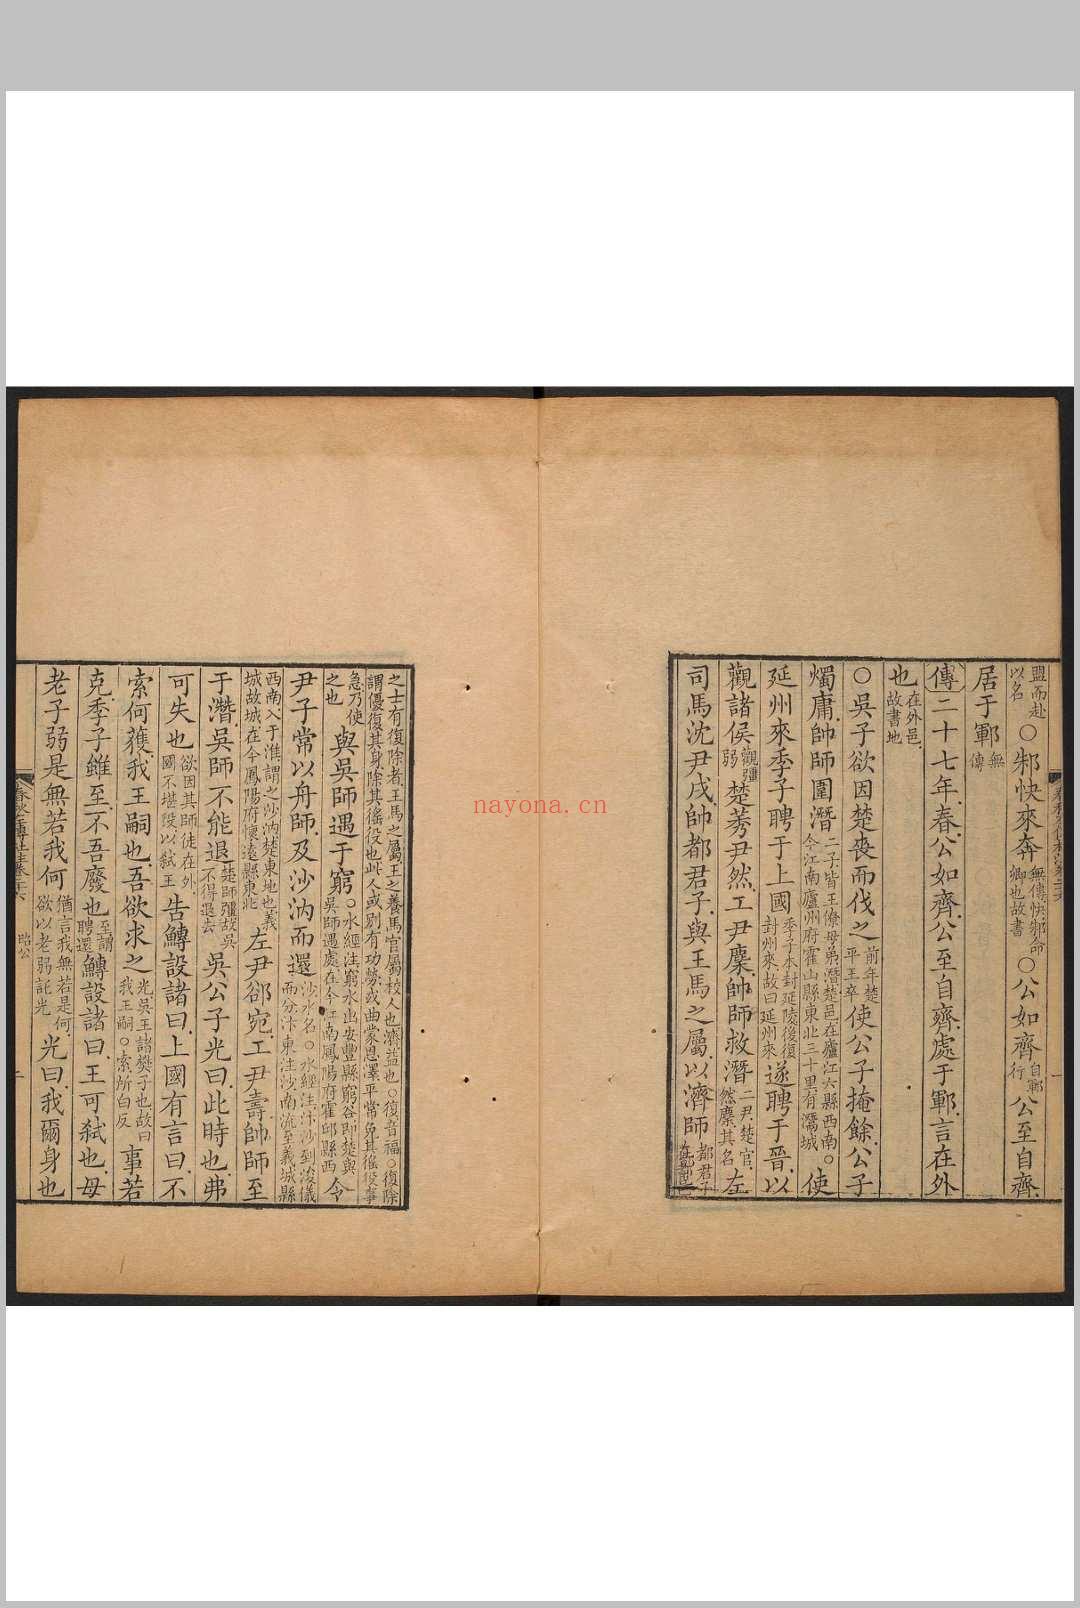 盟而赴以名○邾快來奔無傳快邾命卿也故書○公如齊自鄆行公至自齊
居于鄆無傳
傳二十七年春公如齊公至自齊處于鄆言在外
也在外邑故書地
○吳子欲因楚喪而伐之前年楚平王卒使公子掩餘公子
燭庸帥師圍潛二子皆王僚母弟潛楚邑在廬江六縣西南○今江南廬州府霍山縣東北三十里有灊城使
延州來季子聘于上國季子本封延陵後復封州來故曰延州來遂聘于晉以
觀諸侯觀彊弱楚莠尹然工尹麇帥師救潛二尹楚官然麇其名左
司馬沈尹戌帥都君子與王馬之屬以濟師都君子
之士有復除者王馬之屬王之養馬官屬校人也濟益也○復音福○復除謂優復其身除其徭役也此人或別有功勞或曲蒙恩澤平常免其徭役事
急乃使之也與吳師遇于窮○水經注窮水出安豐縣窮谷即楚與吳師遇處在今江南鳳陽府霍邱縣西令
尹子常以舟師及沙汭而還沙水名○水經注汴沙到浚儀而分汴東注沙南流至義城縣
西南入于淮謂之沙汭楚東地也義城故城在今鳳陽府懷遠縣東北左尹郤宛工尹壽帥師至
于潛吳師不能退楚師彊故吳不得退去吳公子光曰此時也弗
可失也欲因其師徒在外國不堪役以弒王告鱄設諸曰上國有言曰不
索何獲我王嗣也吾欲求之光吳王諸樊子也故曰我王嗣○索所白反事若
克季子雖至不吾廢也至謂聘還鱄設諸曰王可弒也母
老子弱是無若我何猶言我無若是何欲以老弱託光光曰我爾身也
春秋左傳杜注卷二十六 昭公
nayona.cn